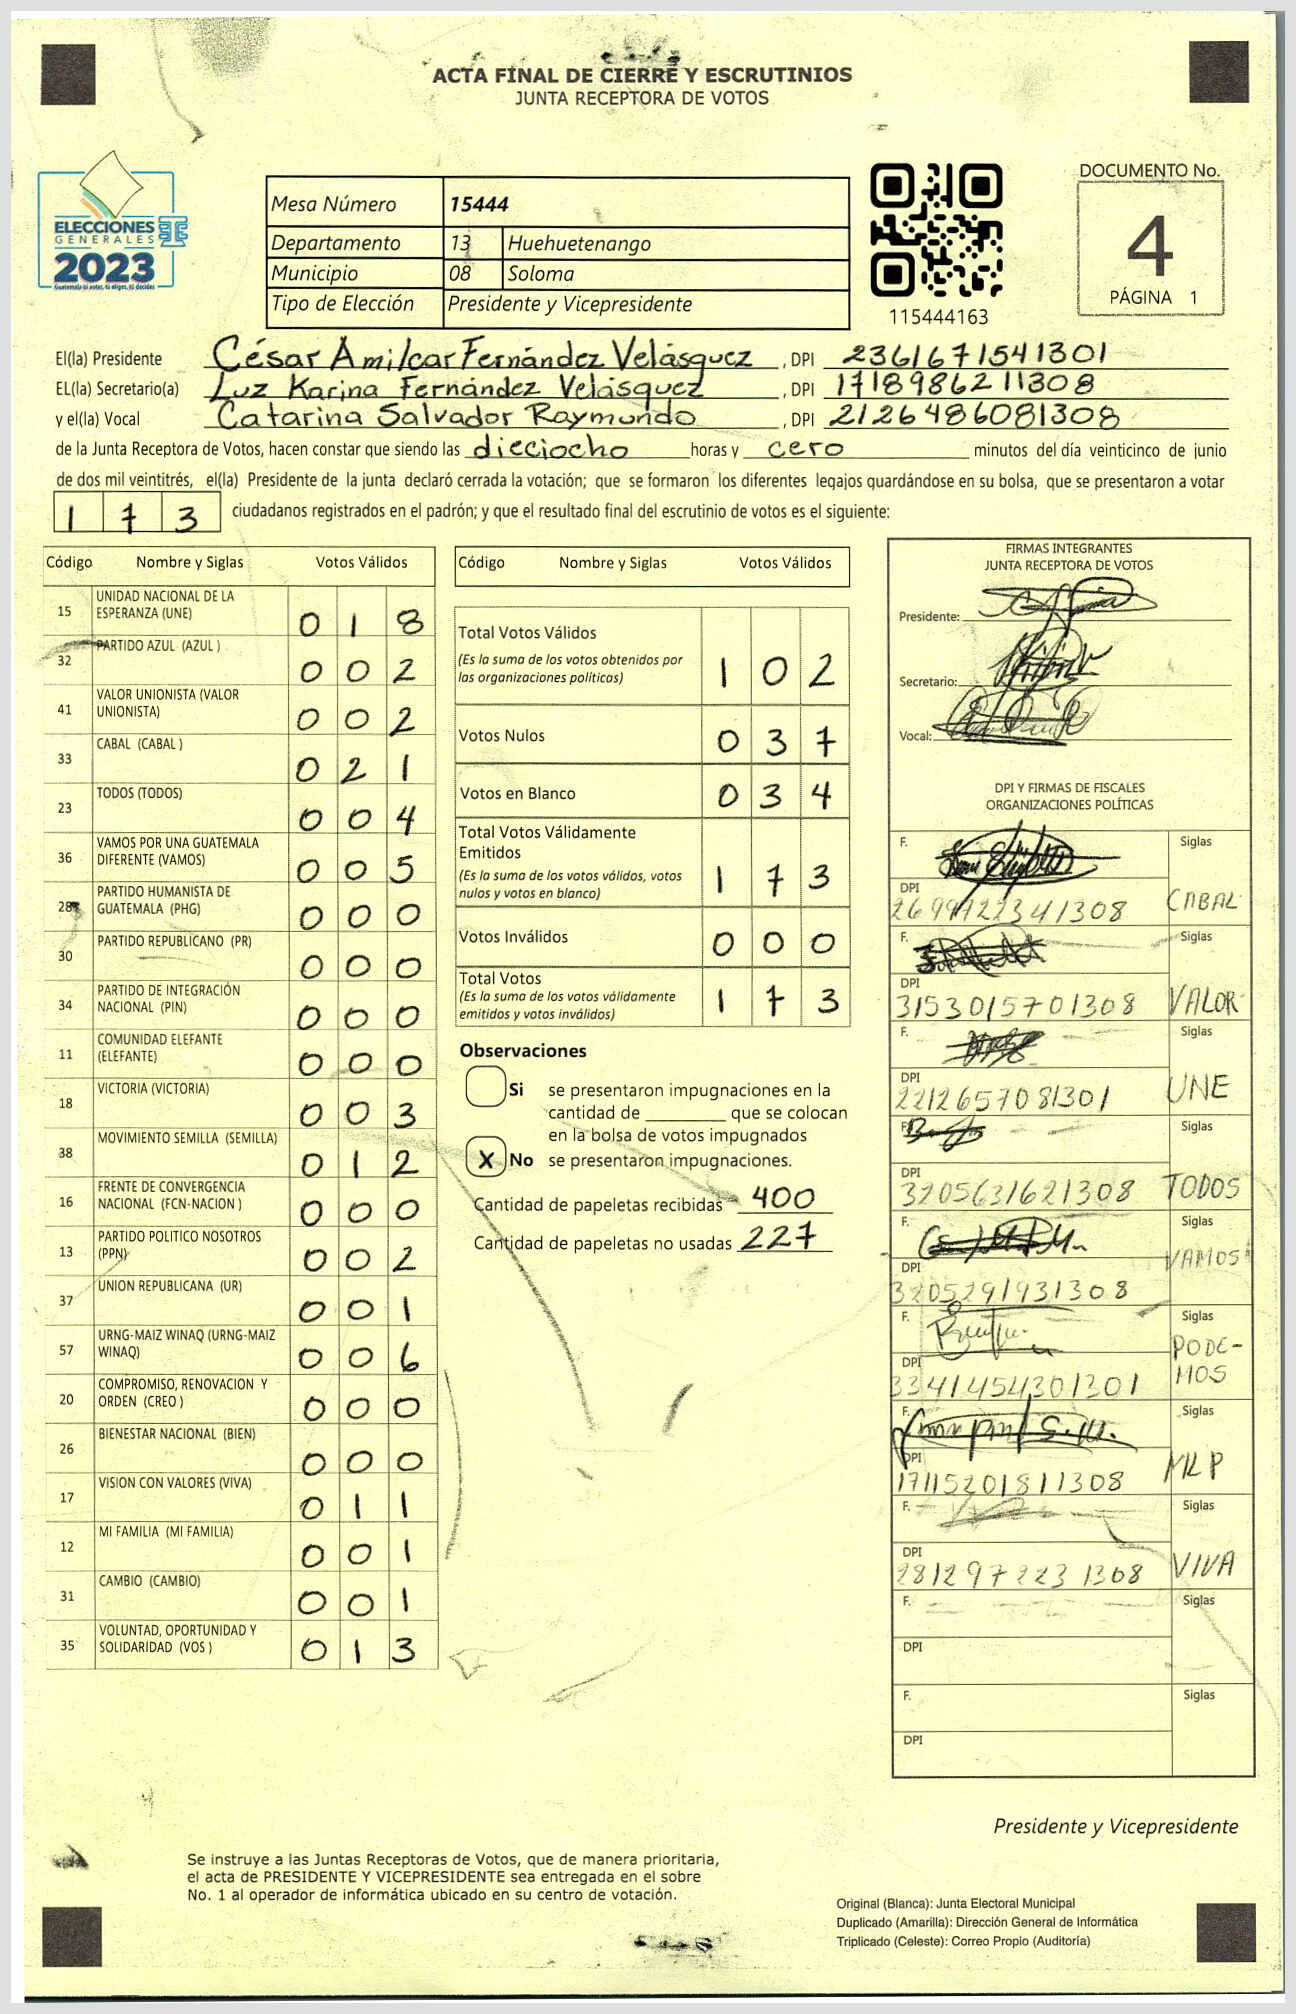 ACTA FINAL DE CIERRE Y ESCRUTINIOS
JUNTA RECEPTORA DE VOTOS
ELECCIONES
GENERALES
2023
Guatemala tú votas, tú eliges, tú decides
Mesa Número 15444
Departamento 13 Huehuetenango
Municipio 08 Soloma
Tipo de Elección Presidente y Vicepresidente
115444163
DOCUMENTO No.
4
PÁGINA 1
El(la) Presidente César Amilcar Fernández Velásquez , DPI 2361671541301
EL(la) Secretario(a) Luz Karina Fernández Velásquez , DPI 1718986211308
y el(la) Vocal Catarina Salvador Raymundo , DPI 2126486081308
de la Junta Receptora de Votos, hacen constar que siendo las dieciocho horas y cero minutos del día veinticinco de junio
de dos mil veintitrés, el(la) Presidente de la junta declaró cerrada la votación; que se formaron los diferentes legajos guardándose en su bolsa, que se presentaron a votar
173 ciudadanos registrados en el padrón; y que el resultado final del escrutinio de votos es el siguiente:
Código Nombre y Siglas Votos Válidos
15 UNIDAD NACIONAL DE LA
ESPERANZA (UNE) 018
32 PARTIDO AZUL (AZUL ) 002
41 VALOR UNIONISTA (VALOR
UNIONISTA) 002
33 CABAL (CABAL ) 021
23 TODOS (TODOS) 004
36 VAMOS POR UNA GUATEMALA
DIFERENTE (VAMOS) 005
28 PARTIDO HUMANISTA DE
GUATEMALA (PHG) 000
30 PARTIDO REPUBLICANO (PR) 000
34 PARTIDO DE INTEGRACIÓN
NACIONAL (PIN) 000
11 COMUNIDAD ELEFANTE
(ELEFANTE) 000
18 VICTORIA (VICTORIA) 003
38 MOVIMIENTO SEMILLA (SEMILLA) 012
16 FRENTE DE CONVERGENCIA
NACIONAL (FCN-NACION ) 000
13 PARTIDO POLITICO NOSOTROS
(PPN) 002
37 UNION REPUBLICANA (UR) 001
57 URNG-MAIZ WINAQ (URNG-MAIZ
WINAQ) 006
20 COMPROMISO, RENOVACION Y
ORDEN (CREO ) 000
26 BIENESTAR NACIONAL (BIEN) 000
17 VISION CON VALORES (VIVA) 011
12 MI FAMILIA (MI FAMILIA) 001
31 CAMBIO (CAMBIO) 001
35 VOLUNTAD, OPORTUNIDAD Y
SOLIDARIDAD (VOS ) 013
Código Nombre y Siglas Votos Válidos
Total Votos Válidos
(Es la suma de los votos obtenidos por
las organizaciones políticas) 102
Votos Nulos 037
Votos en Blanco 034
Total Votos Válidamente
Emitidos
(Es la suma de los votos válidos, votos
nulos y votos en blanco) 173
Votos Inválidos 000
Total Votos
(Es la suma de los votos válidamente
emitidos y votos inválidos) 173
Observaciones
Si se presentaron impugnaciones en la
cantidad de ________ que se colocan
en la bolsa de votos impugnados
X No se presentaron impugnaciones.
Cantidad de papeletas recibidas 400
Cantidad de papeletas no usadas 227
FIRMAS INTEGRANTES
JUNTA RECEPTORA DE VOTOS
Presidente:
Secretario:
Vocal:
DPI Y FIRMAS DE FISCALES
ORGANIZACIONES POLÍTICAS
F. Siglas
DPI CABAL
F. Siglas
DPI VALOR
3153015701308
F. Siglas
DPI UNE
2212657081301
F. Siglas
DPI TODOS
3205631621308
F. Siglas
DPI VAMOS
3205291931308
F. Siglas
DPI PODE-
MOS
3341454301301
F. Siglas
DPI MLP
F. Siglas
DPI VIVA
2812972231308
F. Siglas
DPI
F. Siglas
DPI
Presidente y Vicepresidente
Se instruye a las Juntas Receptoras de Votos, que de manera prioritaria,
el acta de PRESIDENTE Y VICEPRESIDENTE sea entregada en el sobre
No. 1 al operador de informática ubicado en su centro de votación.
Original (Blanca): Junta Electoral Municipal
Duplicado (Amarilla): Dirección General de Informática
Triplicado (Celeste): Correo Propio (Auditoría)